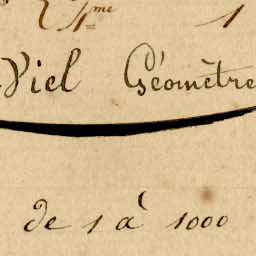 4.me 1
Viel Géomètre
de 1 à 1000